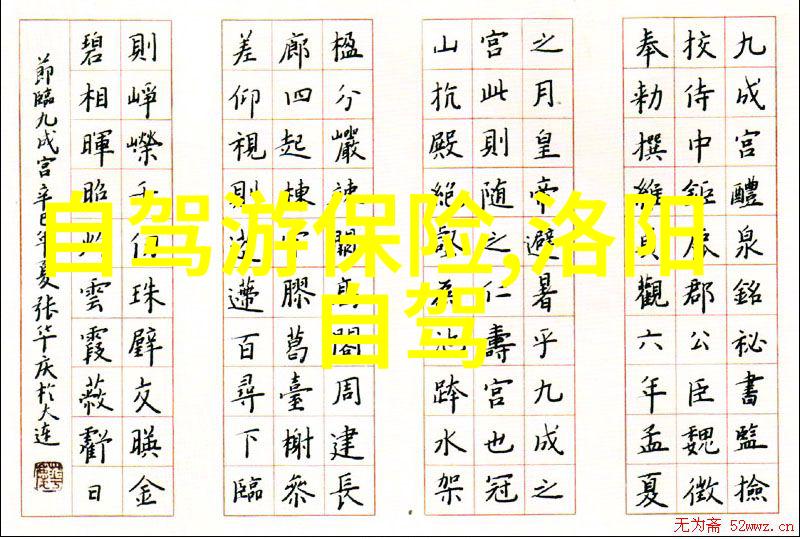 九成宮醴泉銘秘書監撿
挍侍中鉅鹿郡公臣魏徵
奉勅撰維貞觀六年孟夏
之月皇帝避暑乎九成之
宮此則随之仁壽宮也冠
山抗殿絕壑為池跨水架
楹分巖竦闕高閣周建長
廊四起棟宇膠葛臺榭參
差仰視則迢遰百尋下臨
則崢嶸千仞珠璧交暎金
碧相暉昭灼雲霞蔽虧日
節臨九成宮辛巳年夏張华庆於大連
自驾游保险,洛阳
自驾
无为斋 52wwz.cn